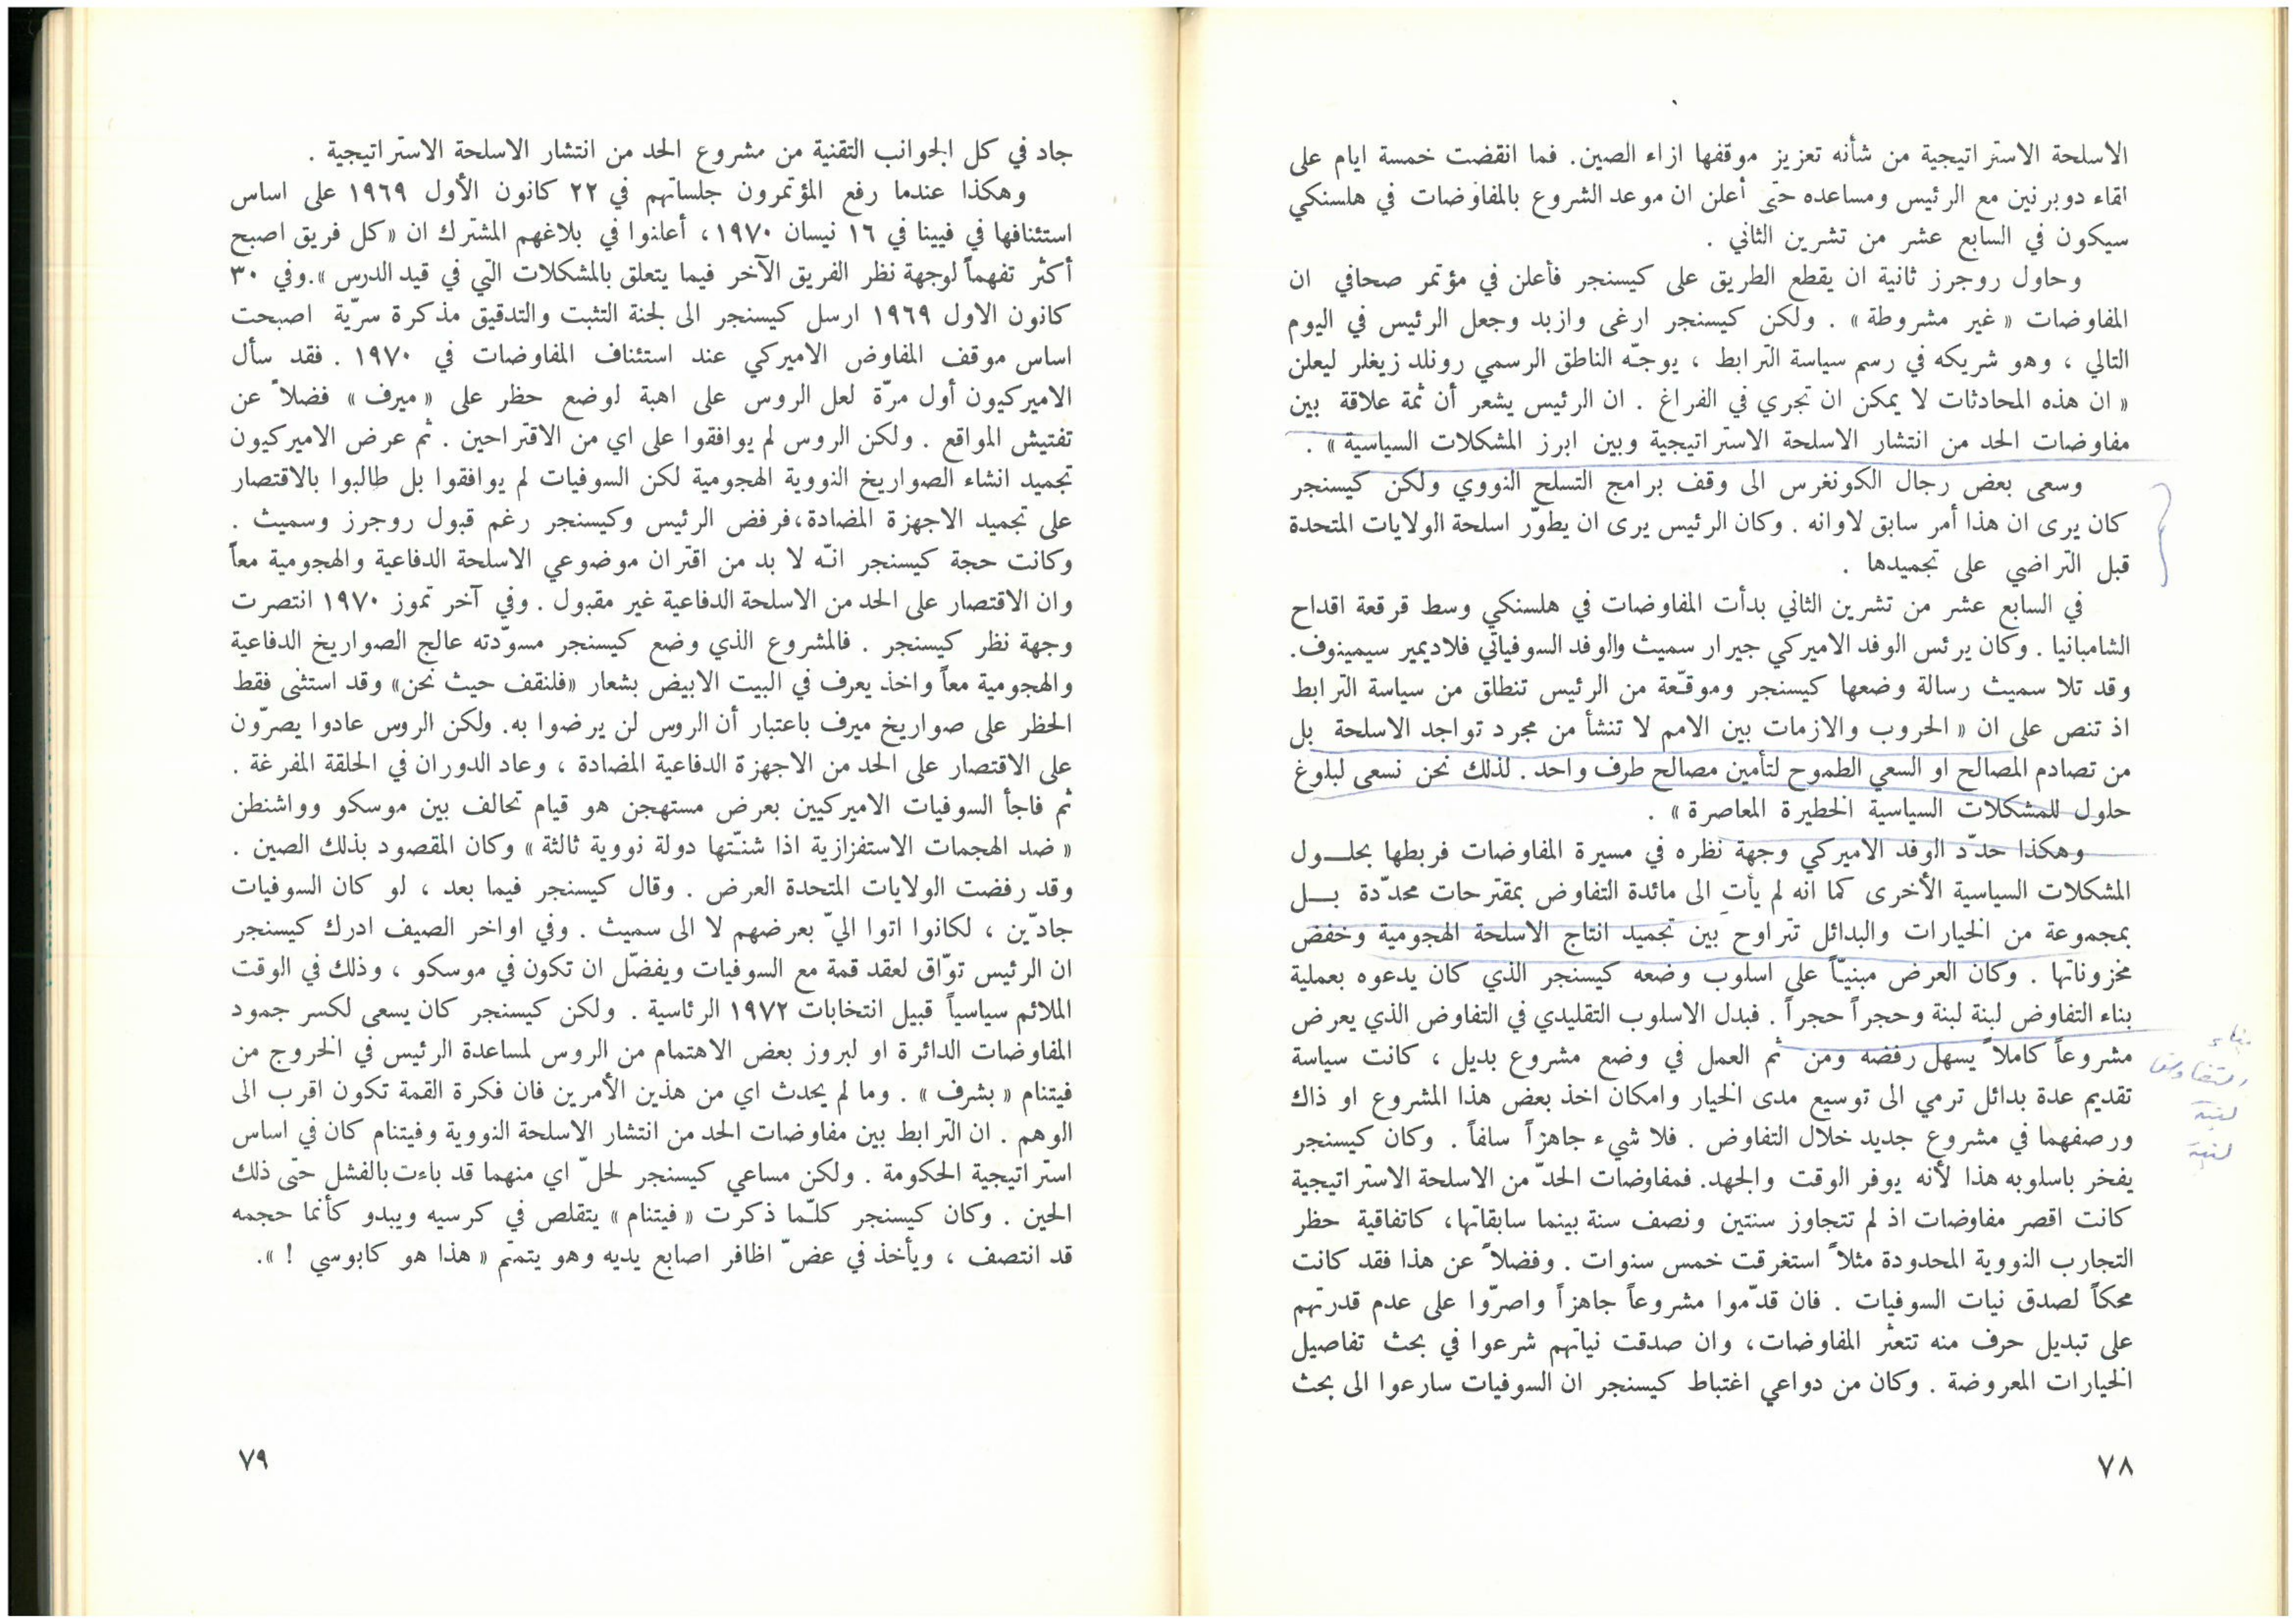 الاسلحة الاستراتيجية من شأنه تعزيز موقفها ازاء الصين. فما انقضت خمسة ايام على
لقاء دوبرنين مع الرئيس ومساعده حتى أعلن ان موعد الشروع بالمفاوضات في هلسنكي
سيكون في السابع عشر من تشرين الثاني .
وحاول روجرز ثانية ان يقطع الطريق على كيسنجر فأعلن في مؤتمر صحافي ان
المفاوضات « غير مشروطة » . ولكن كيسنجر ارغى وازبد وجعل الرئيس في اليوم
التالي ، وهو شريكه في رسم سياسة الترابط ، يوجّه الناطق الرسمي رونلد زيغلر ليعلن
« ان هذه المحادثات لا يمكن ان تجري في الفراغ . ان الرئيس يشعر أن ثمة علاقة بين
مفاوضات الحد من انتشار الاسلحة الاستراتيجية وبين ابرز المشكلات السياسية » .
وسعى بعض رجال الكونغرس الى وقف برامج التسلح النووي ولكن كيسنجر
كان يرى ان هذا أمر سابق لاوانه . وكان الرئيس يرى ان يطوّر اسلحة الولايات المتحدة
قبل التراضي على تجميدها .
في السابع عشر من تشرين الثاني بدأت المفاوضات في هلسنكي وسط قرقعة اقداح
الشامبانيا . وكان يرئس الوفد الاميركي جيرار سميث والوفد السوفياتي فلاديمير سيمينوف.
وقد تلا سميث رسالة وضعها كيسنجر وموقّعة من الرئيس تنطلق من سياسة الترابط
اذ تنص على ان « الحروب والازمات بين الامم لا تنشأ من مجرد تواجد الاسلحة بل
من تصادم المصالح او السعي الطموح لتأمين مصالح طرف واحد . لذلك نحن نسعى لبلوغ
حلول للمشكلات السياسية الخطيرة المعاصرة » .
وهكذا حدّد الوفد الاميركي وجهة نظره في مسيرة المفاوضات فربطها بحلـــول
المشكلات السياسية الأخرى كما انه لم يأتِ الى مائدة التفاوض بمقترحات محدّدة بـــل
بمجموعة من الخيارات والبدائل تتراوح بين تجميد انتاج الاسلحة الهجومية وخفض
مخزوناتها . وكان العرض مبنيّاً على اسلوب وضعه كيسنجر الذي كان يدعوه بعملية
بناء التفاوض لبنة لبنة وحجراً حجراً . فبدل الاسلوب التقليدي في التفاوض الذي يعرض
مشروعاً كاملاً يسهل رفضه ومن ثم العمل في وضع مشروع بديل ، كانت سياسة
تقديم عدة بدائل ترمي الى توسيع مدى الخيار وامكان اخذ بعض هذا المشروع او ذاك
ورصفهما في مشروع جديد خلال التفاوض . فلا شيء جاهزاً سلفاً . وكان كيسنجر
يفخر باسلوبه هذا لأنه يوفر الوقت والجهد. فمفاوضات الحدّ من الاسلحة الاستراتيجية
كانت اقصر مفاوضات اذ لم تتجاوز سنتين ونصف سنة بينما سابقاتها، كاتفاقية حظر
التجارب النووية المحدودة مثلاً استغرقت خمس سنوات . وفضلاً عن هذا فقد كانت
محكاً لصدق نيات السوفيات . فان قدّموا مشروعاً جاهزاً واصرّوا على عدم قدرتهم
على تبديل حرف منه تتعثر المفاوضات، وان صدقت نياتهم شرعوا في بحث تفاصيل
الخيارات المعروضة . وكان من دواعي اغتباط كيسنجر ان السوفيات سارعوا الى بحث
بناء
التفاوض
لبنة
لبنة
٧٨
جاد في كل الجوانب التقنية من مشروع الحد من انتشار الاسلحة الاستراتيجية .
وهكذا عندما رفع المؤتمرون جلساتهم في ٢٢ كانون الأول ١٩٦٩ على اساس
استئنافها في فيينا في ١٦ نيسان ١٩٧٠، أعلنوا في بلاغهم المشترك ان «كل فريق اصبح
أكثر تفهماً لوجهة نظر الفريق الآخر فيما يتعلق بالمشكلات التي في قيد الدرس ».وفي ٣٠
كانون الاول ١٩٦٩ ارسل كيسنجر الى لجنة التثبت والتدقيق مذكرة سرّية اصبحت
اساس موقف المفاوض الاميركي عند استئناف المفاوضات في ١٩٧٠ . فقد سأل
الاميركيون أول مرّة لعل الروس على اهبة لوضع حظر على « ميرف » فضلاً عن
تفتيش المواقع . ولكن الروس لم يوافقوا على اي من الاقتراحين . ثم عرض الاميركيون
تجميد انشاء الصواريخ النووية الهجومية لكن السوفيات لم يوافقوا بل طالبوا بالاقتصار
على تجميد الاجهزة المضادة،فرفض الرئيس وكيسنجر رغم قبول روجرز وسميث .
وكانت حجة كيسنجر انّه لا بد من اقتران موضوعي الاسلحة الدفاعية والهجومية معاً
وان الاقتصار على الحد من الاسلحة الدفاعية غير مقبول . وفي آخر تموز ١٩٧٠ انتصرت
وجهة نظر كيسنجر . فالمشروع الذي وضع كيسنجر مسوّدته عالج الصواريخ الدفاعية
والهجومية معاً واخذ يعرف في البيت الابيض بشعار «فلنقف حيث نحن» وقد استثنى فقط
الحظر على صواريخ ميرف باعتبار أن الروس لن يرضوا به. ولكن الروس عادوا يصرّون
على الاقتصار على الحد من الاجهزة الدفاعية المضادة ، وعاد الدوران في الحلقة المفرغة .
ثم فاجأ السوفيات الاميركيين بعرض مستهجن هو قيام تحالف بين موسكو وواشنطن
« ضد الهجمات الاستفزازية اذا شنّتها دولة نووية ثالثة » وكان المقصود بذلك الصين .
وقد رفضت الولايات المتحدة العرض . وقال كيسنجر فيما بعد ، لو كان السوفيات
جادّين ، لكانوا اتوا اليّ بعرضهم لا الى سميث . وفي اواخر الصيف ادرك كيسنجر
ان الرئيس توّاق لعقد قمة مع السوفيات ويفضّل ان تكون في موسكو ، وذلك في الوقت
الملائم سياسياً قبيل انتخابات ١٩٧٢ الرئاسية . ولكن كيسنجر كان يسعى لكسر جمود
المفاوضات الدائرة او لبروز بعض الاهتمام من الروس لمساعدة الرئيس في الخروج من
فيتنام « بشرف » . وما لم يحدث اي من هذين الأمرين فان فكرة القمة تكون اقرب الى
الوهم . ان الترابط بين مفاوضات الحد من انتشار الاسلحة النووية وفيتنام كان في اساس
استراتيجية الحكومة . ولكن مساعي كيسنجر لحلّ اي منهما قد باءت بالفشل حتى ذلك
الحين . وكان كيسنجر كلّما ذكرت « فيتنام » يتقلص في كرسيه ويبدو كأنما حجمه
قد انتصف ، ويأخذ في عضّ اظافر اصابع يديه وهو يتمتم « هذا هو كابوسي ! ».
٧٩